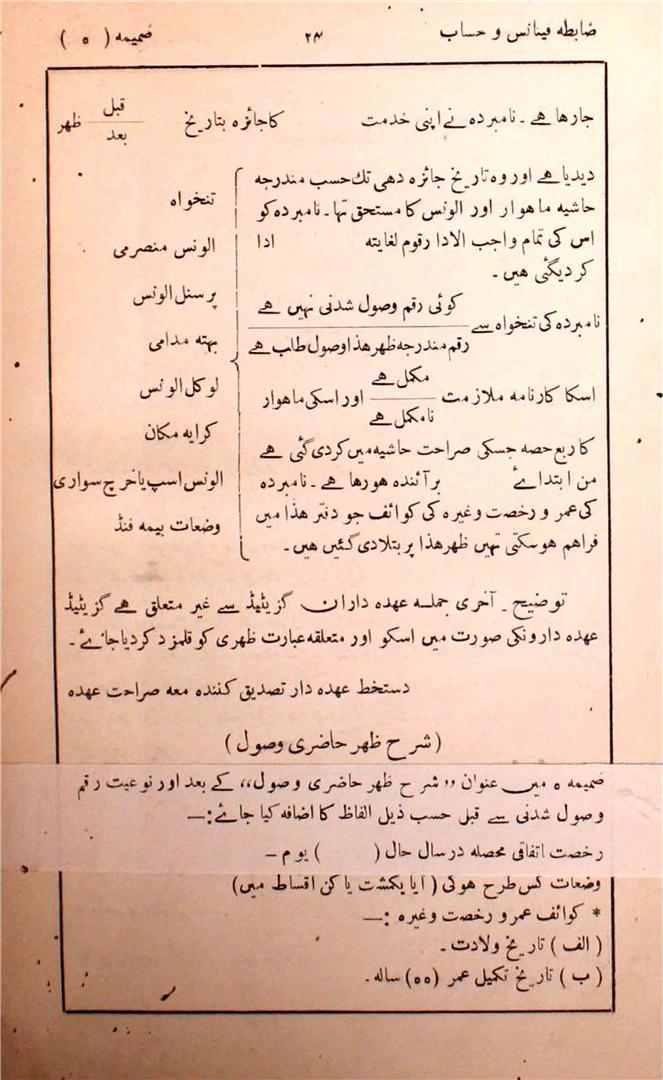 ضابطہ فینانس و حساب
۲۴
ضمیمہ ( ۵ )
جارہا ہے ۔ نامبردہ نے اپنی خدمت کا جائزہ بتاریخ قبل / بعد ظہر
دیدیا ہے اور وہ تاریخ جائزہ دہی تک حسب مندرجہ
حاشیہ ماہوار اور الونس کا مستحق تہا ۔ نامبردہ کو
اس کی تمام واجب الادا رقوم لغایتہ ادا
کردیگئی ہیں ۔
نامبردہ کی تنخواہ سے کوئی رقم وصول شدنی نہیں ہے / رقم مندرجہ ظہر ھذا وصول طلب ہے
اسکا کارنامہ ملازمت مکمل ہے / نامکمل ہے اور اسکی ماہوار
کا ربع حصہ جسکی صراحت حاشیہ میں کردی گئی ہے
من ابتدائے برآئندہ ہورہا ہے ۔ نامبردہ
کی عمر و رخصت وغیرہ کی کوائف جو دفتر ھذا میں
فراہم ہوسکتی تہیں ظہر ھذا پر بتلادی گئیں ہیں ۔
تنخواہ
الونس منصرمی
پرسنل الونس
بہتہ مدامی
لوکل الونس
کرایہ مکان
الونس اسپ یا خرچ سواری
وضعات بیمہ فنڈ
توضیح ۔ آخری جملہ عہدہ داران گزیٹیڈ سے غیر متعلق ہے گزیٹیڈ
عہدہ دارونکی صورت میں اسکو اور متعلقہ عبارت ظہری کو قلمزد کردیا جائے ۔
دستخط عہدہ دار تصدیق کنندہ معہ صراحت عہدہ
( شرح ظہر حاضری وصول )
ضمیمہ ۵ میں عنوان ,,شرح ظہر حاضری وصول،، کے بعد اور نوعیت رقم
وصول شدنی سے قبل حسب ذیل الفاظ کا اضافہ کیا جائے :—
رخصت اتفاقی محصلہ در سال حال ( ) یوم –
وضعات کس طرح ہوگی ( آیا یکمشت یا کن اقساط میں)
* کوائف عمر و رخصت وغیرہ :—
( الف ) تاریخ ولادت ۔
( ب ) تاریخ تکمیل عمر (۵۵) سالہ ۔